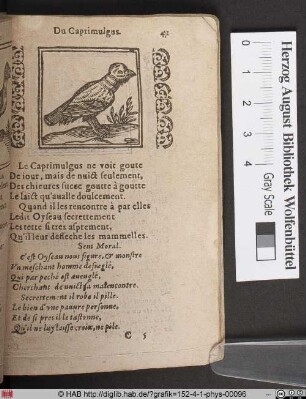 Du Caprimulgus. 47
Le Caprimulgus ne voit goute
De iour, mais de nuict seulement,
Des chieures succe goutte à goutte
Le laict qu'aualle doulcement.
Quand il les rencontre à part elles
Ledit Oyseau secrettement
Les tette si tres asprement,
Qu'il leur desseche les mammelles.
Sens Moral.
Cest Oyseau nous figure, & monstre
Vn meschant homme desreglé,
Qui par peché est aueuglé,
Cherchant de nuict sa malencontre.
Secrettement il robe il pille
Le bien d'vne pauure personne,
Et de si pres il le tastonne,
Qu'il ne luy laisse croix, ne pile.
C 5
Herzog August Bibliothek Wolfenbüttel
0 1 2 3 4
Gray Scale
© HAB http://diglib.hab.de/?grafik=152-4-1-phys-00096